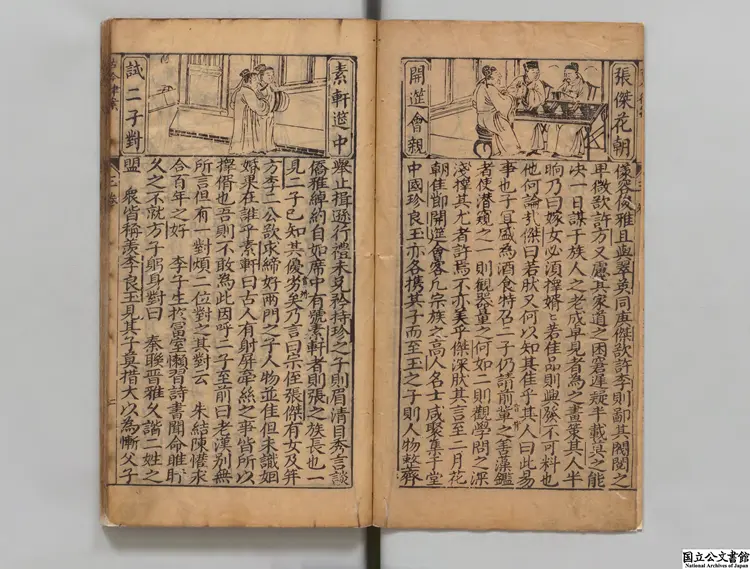 張傑花朝
開筵會親
儀容俊雅且與翠英同庚傑欲許李則鄙其閥閱之
卑微欲許方又慮其家道之困窘遲疑半載莫之能
决一日謀于族人之老成卓見者為之畫策其人半
晌乃曰嫁女必須擇婿〻若佳品則興發不可料也
他何論哉傑曰若肰又何以知其佳乎其人曰此易
事也子宜盛為酒食特召二子仍請前輩之善藻鑑
者使潛窺之一則觀器量之何如二則觀學問之深
淺擇其尤者許焉不亦美乎傑深肰其言至二月花
朝佳節開筵會客凢宗族之高人名士咸聚集于堂
中國珍良玉亦各携其子而至玉之子則人物整齊
素軒筵中
試二子對
舉止揖遜行禮未免矜持珍之子則眉清目秀言談
僑雅綽約自如席中有號素軒者則張之族長也一
見二子已知其優劣矣乃言曰宗侄張傑有女及笄
方李二公欲求締好兩門之子人物並佳但未識姻
婚果在誰乎素軒曰古人有射屏牽絲之事皆所以
擇婿也吾則不敢為此因呼二子至前曰老漢別無
所言但有一對煩二位對之其對云　朱結陳惜求
合百年之好　李子生於富室懶習詩書聞命睢盱
久之不就方子躬身對曰　秦聯晉雅久諧二姓之
盟　衆皆稱羨李良玉見其子竟措大以為慚父子
国立公文書館
National Archives of Japan